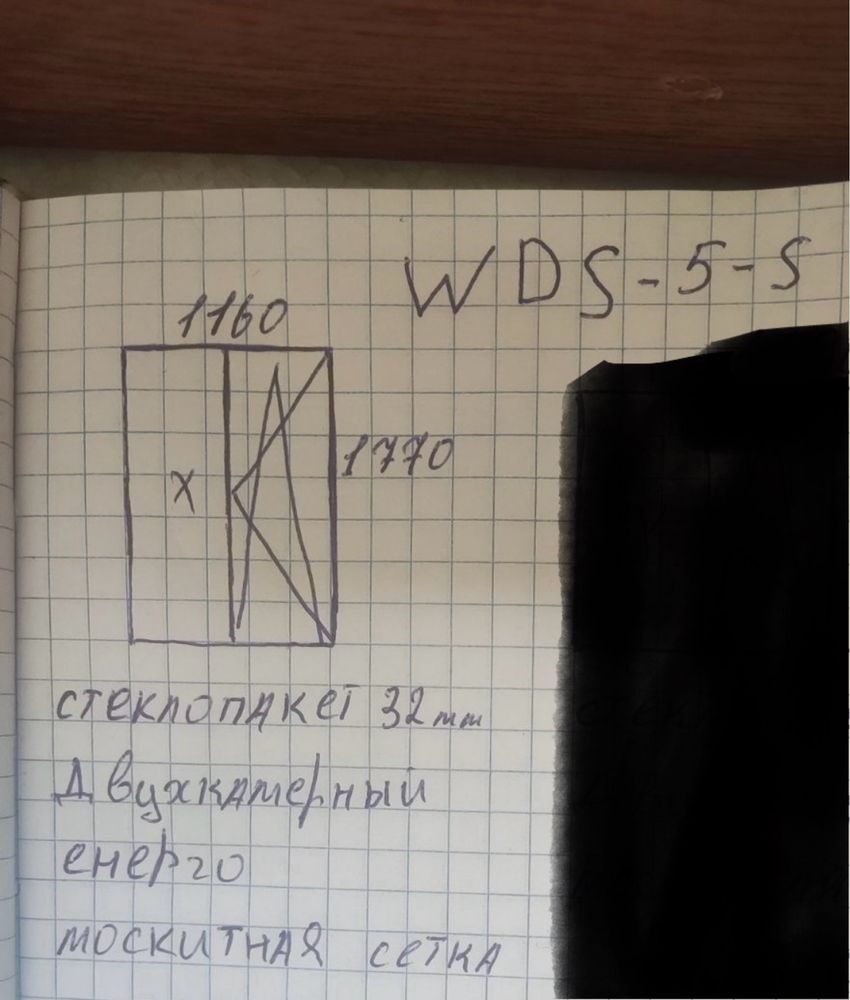 WDS-5-S
1160
1770
X
стеклопакет 32mm
Двухкамерный
енерго
москитная сетка